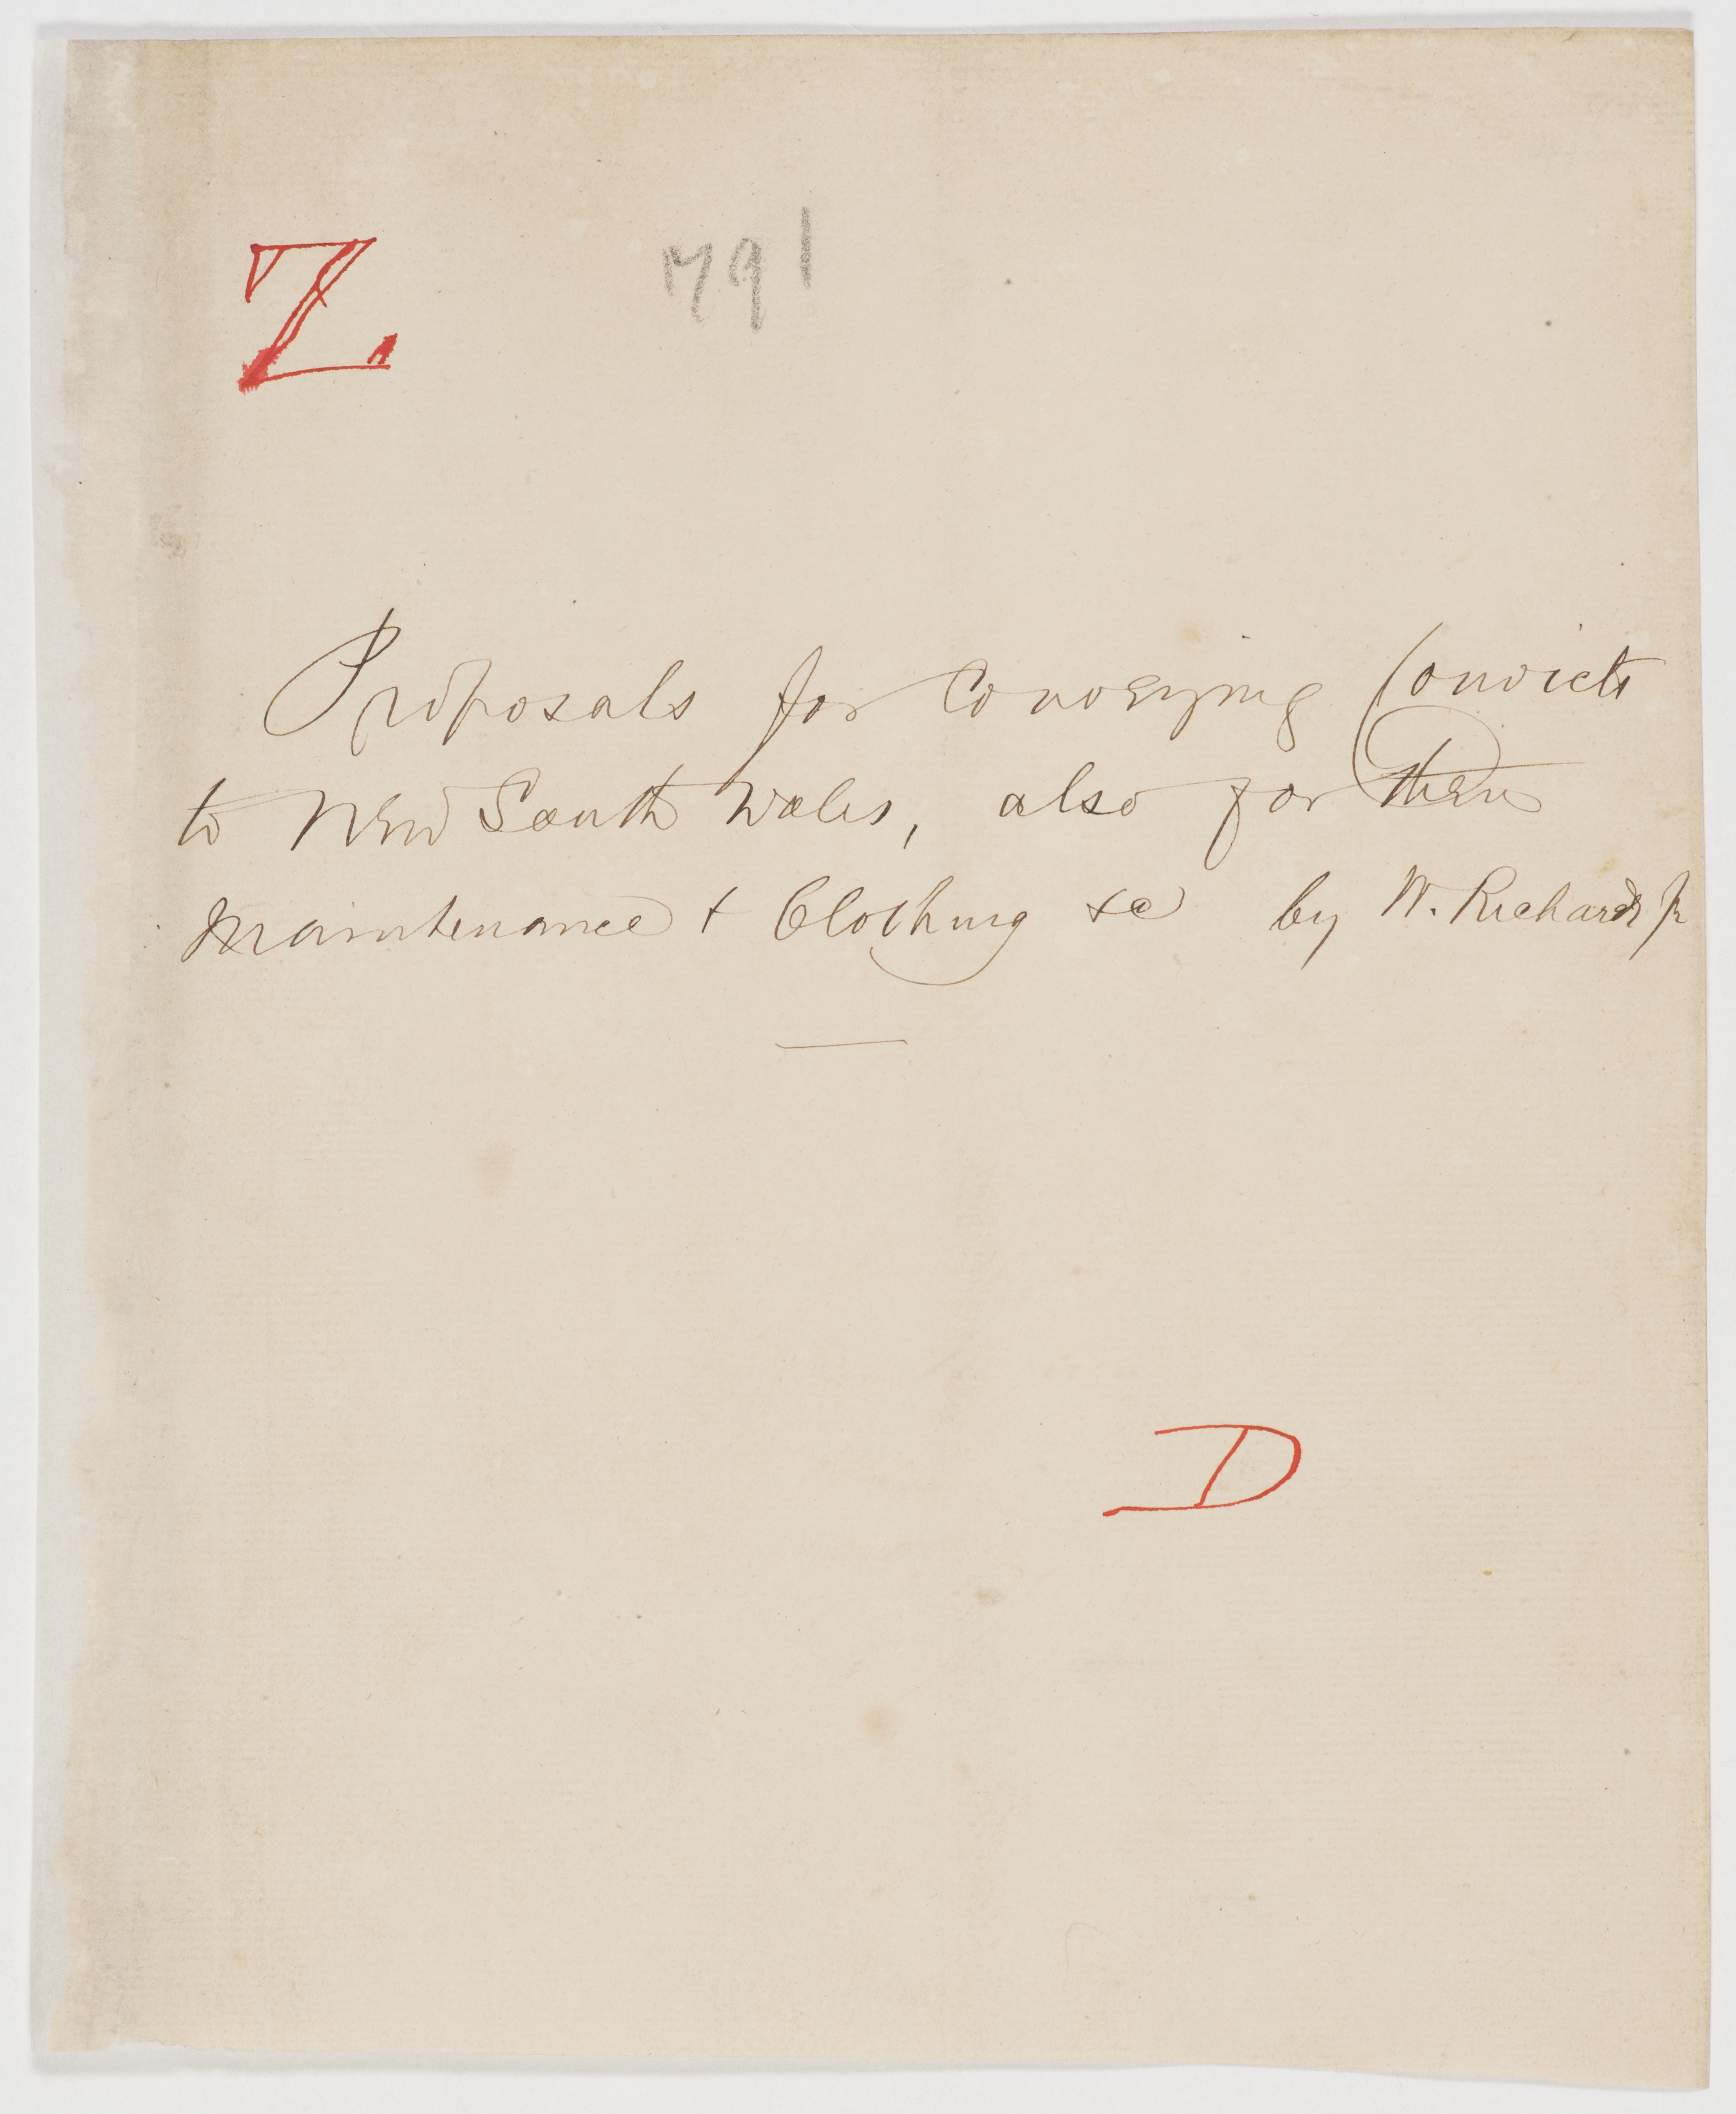 Z 791
Proposals for Conveying Convicts
to New South Wales, also for their
Maintenance & Clothing &c by W. Richards Jr
D